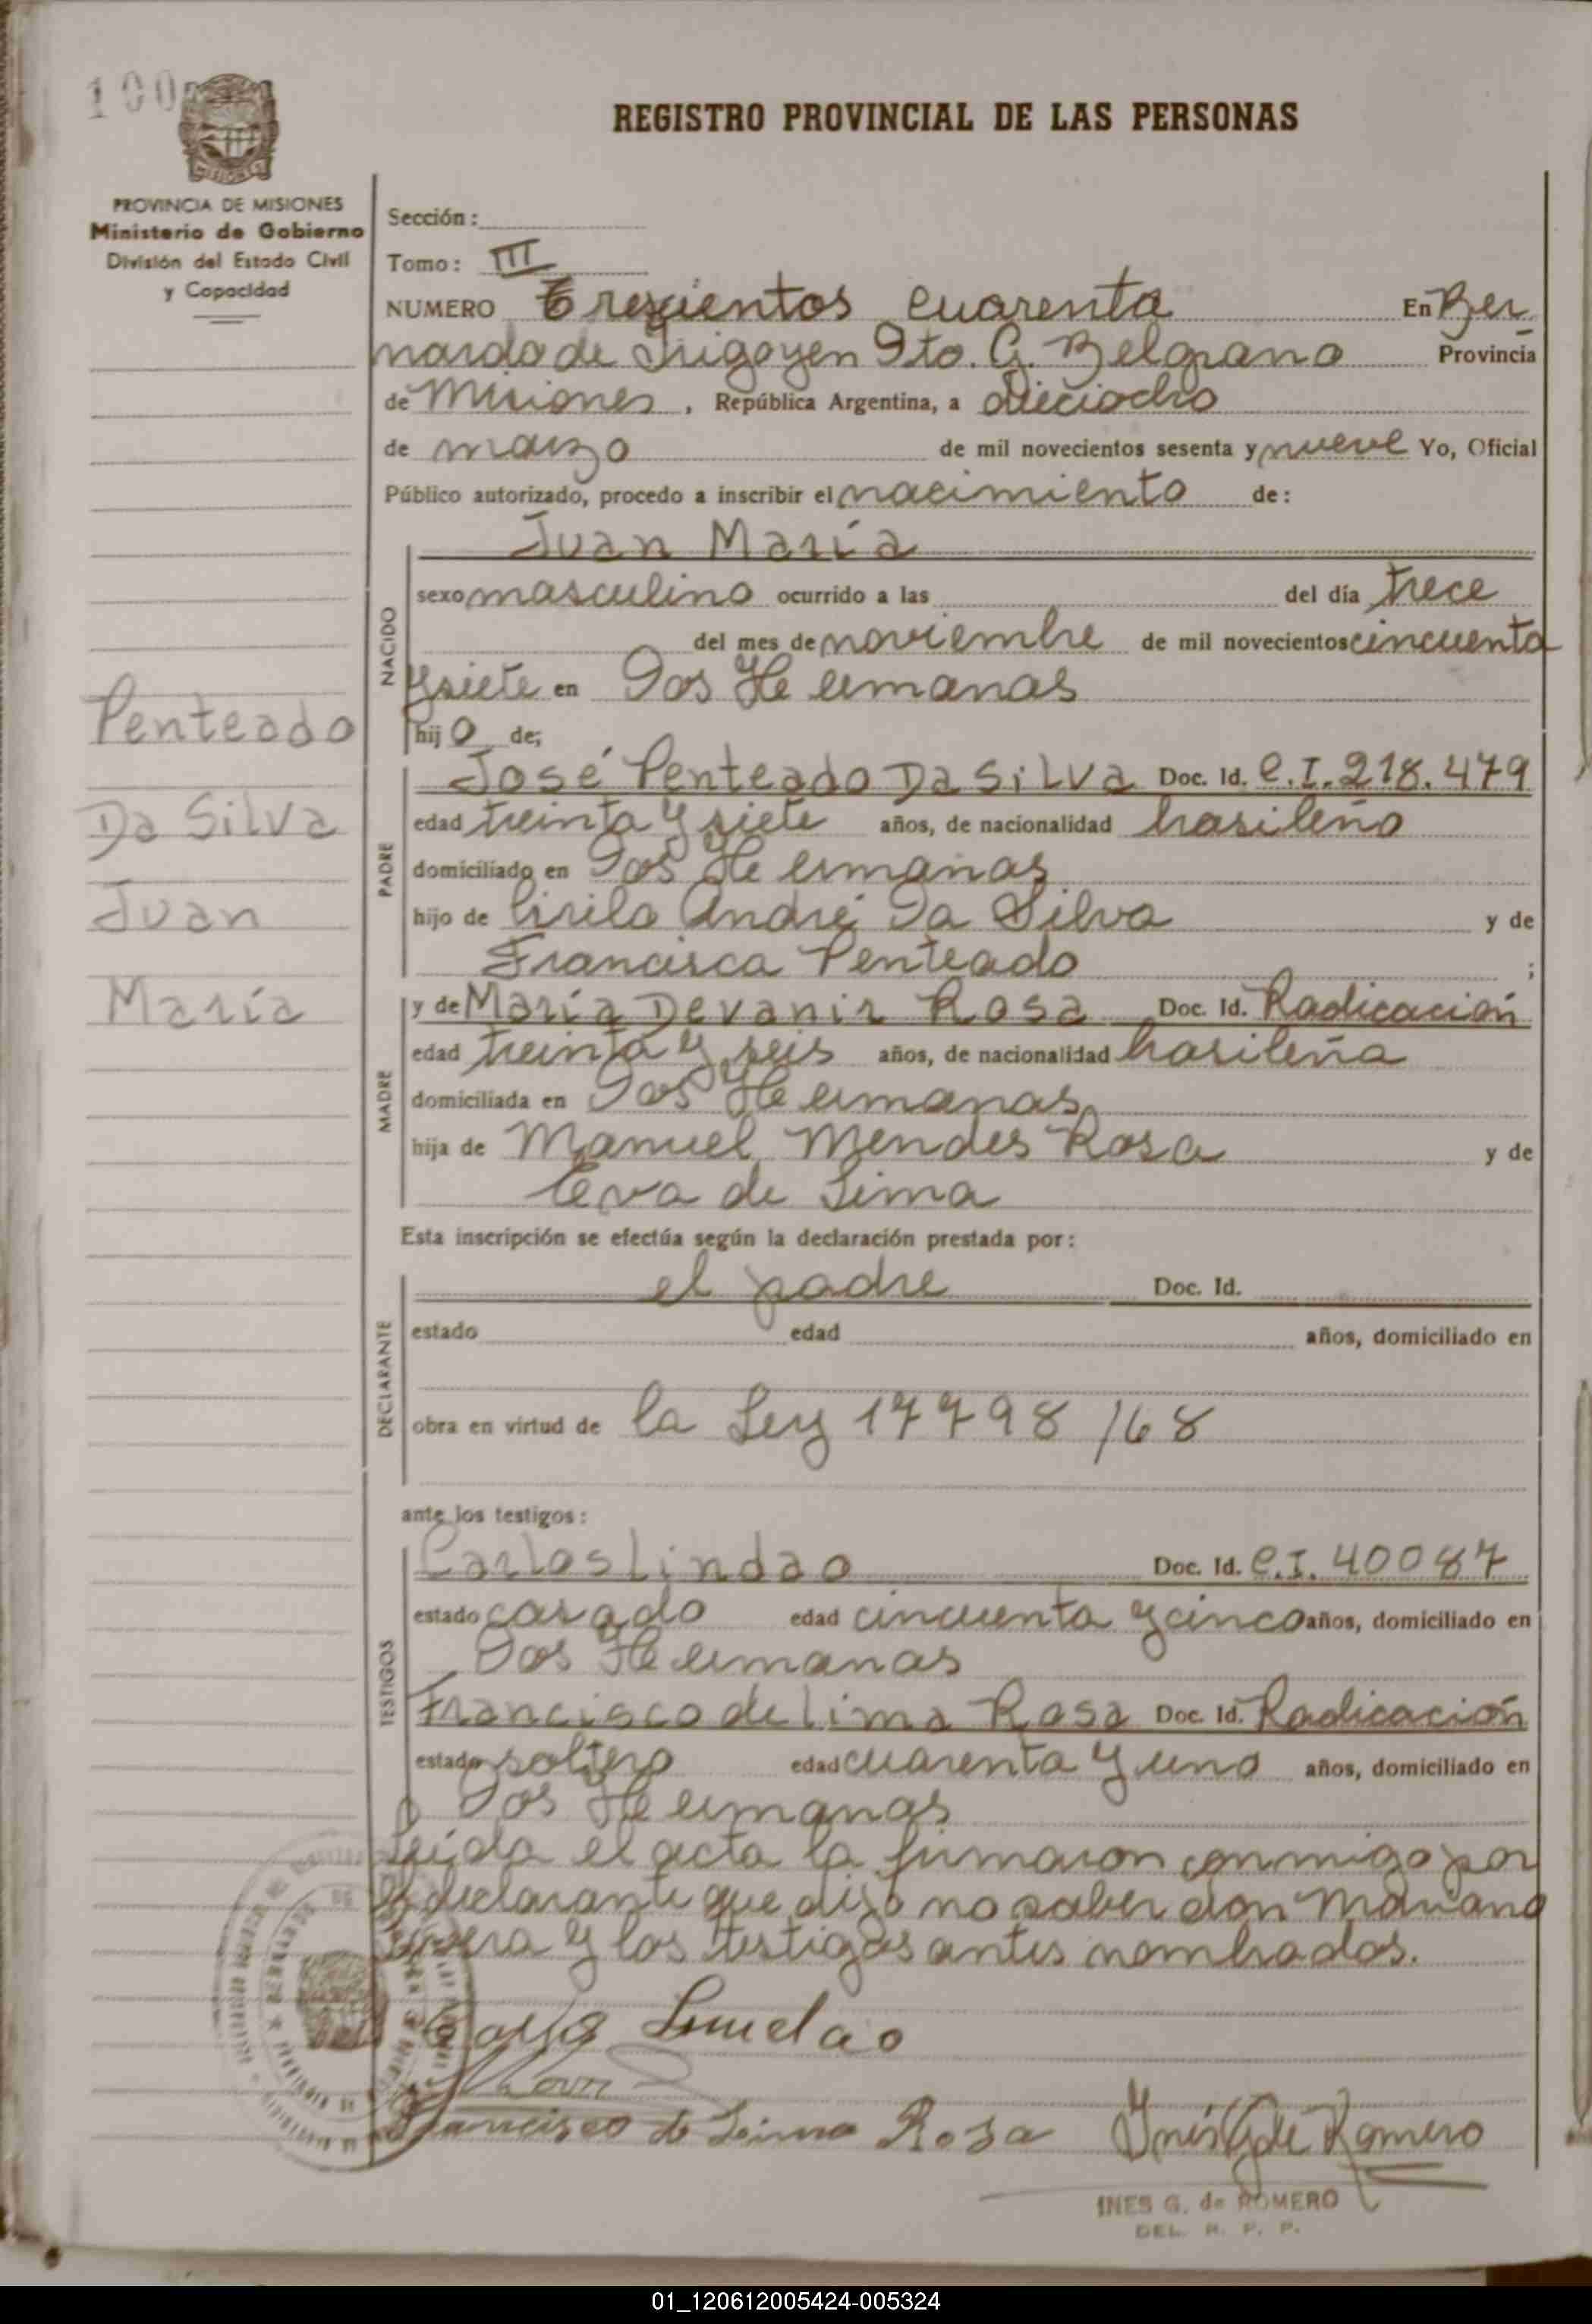 100
REGISTRO PROVINCIAL DE LAS PERSONAS
MISIONES
PROVINCIA DE MISIONES
Ministerio de Gobierno
División del Estado Civil
y Capacidad
Sección:
Tomo: III
NUMERO Trescientos cuarenta En Ber
nardo de Irigoyen Dto. G. Belgrano Provincia
de Misiones, República Argentina, a dieciocho
de marzo de mil novecientos sesenta y nueve Yo, Oficial
Público autorizado, procedo a inscribir el nacimiento de:
Juan María
NACIDO
sexo masculino ocurrido a las del día trece
del mes de noviembre de mil novecientos cincuenta
y siete en Dos Hermanas
hijo de;
Penteado
Da Silva
Juan
María
PADRE
José Penteado Da Silva Doc. Id. C.I. 218.479
edad treinta y siete años, de nacionalidad brasileño
domiciliado en Dos Hermanas
hijo de Cirilo André Da Silva y de
Francisca Penteado ;
MADRE
y de María Devanir Rosa Doc. Id. Radicación
edad treinta y seis años, de nacionalidad brasileña
domiciliada en Dos Hermanas
hija de Manuel Mendes Rosa y de
Eva de Lima
Esta inscripción se efectúa según la declaración prestada por:
DECLARANTE
el padre Doc. Id.
estado edad años, domiciliado en
obra en virtud de la Ley 17798/68
ante los testigos:
TESTIGOS
Carlos Lindao Doc. Id. C.I. 40087
estado casado edad cincuenta y cinco años, domiciliado en
Dos Hermanas
Francisco de Lima Rosa Doc. Id. Radicación
estado soltero edad cuarenta y uno años, domiciliado en
Dos Hermanas
leída el acta la firmaron conmigo por
el declarante que dijo no saber don Mariano
y los testigos antes nombrados.
Lindao
Francisco de Lima Rosa Inés G de Romero
INES G. de ROMERO
DEL. R. P. P.
01_120612005424-005324